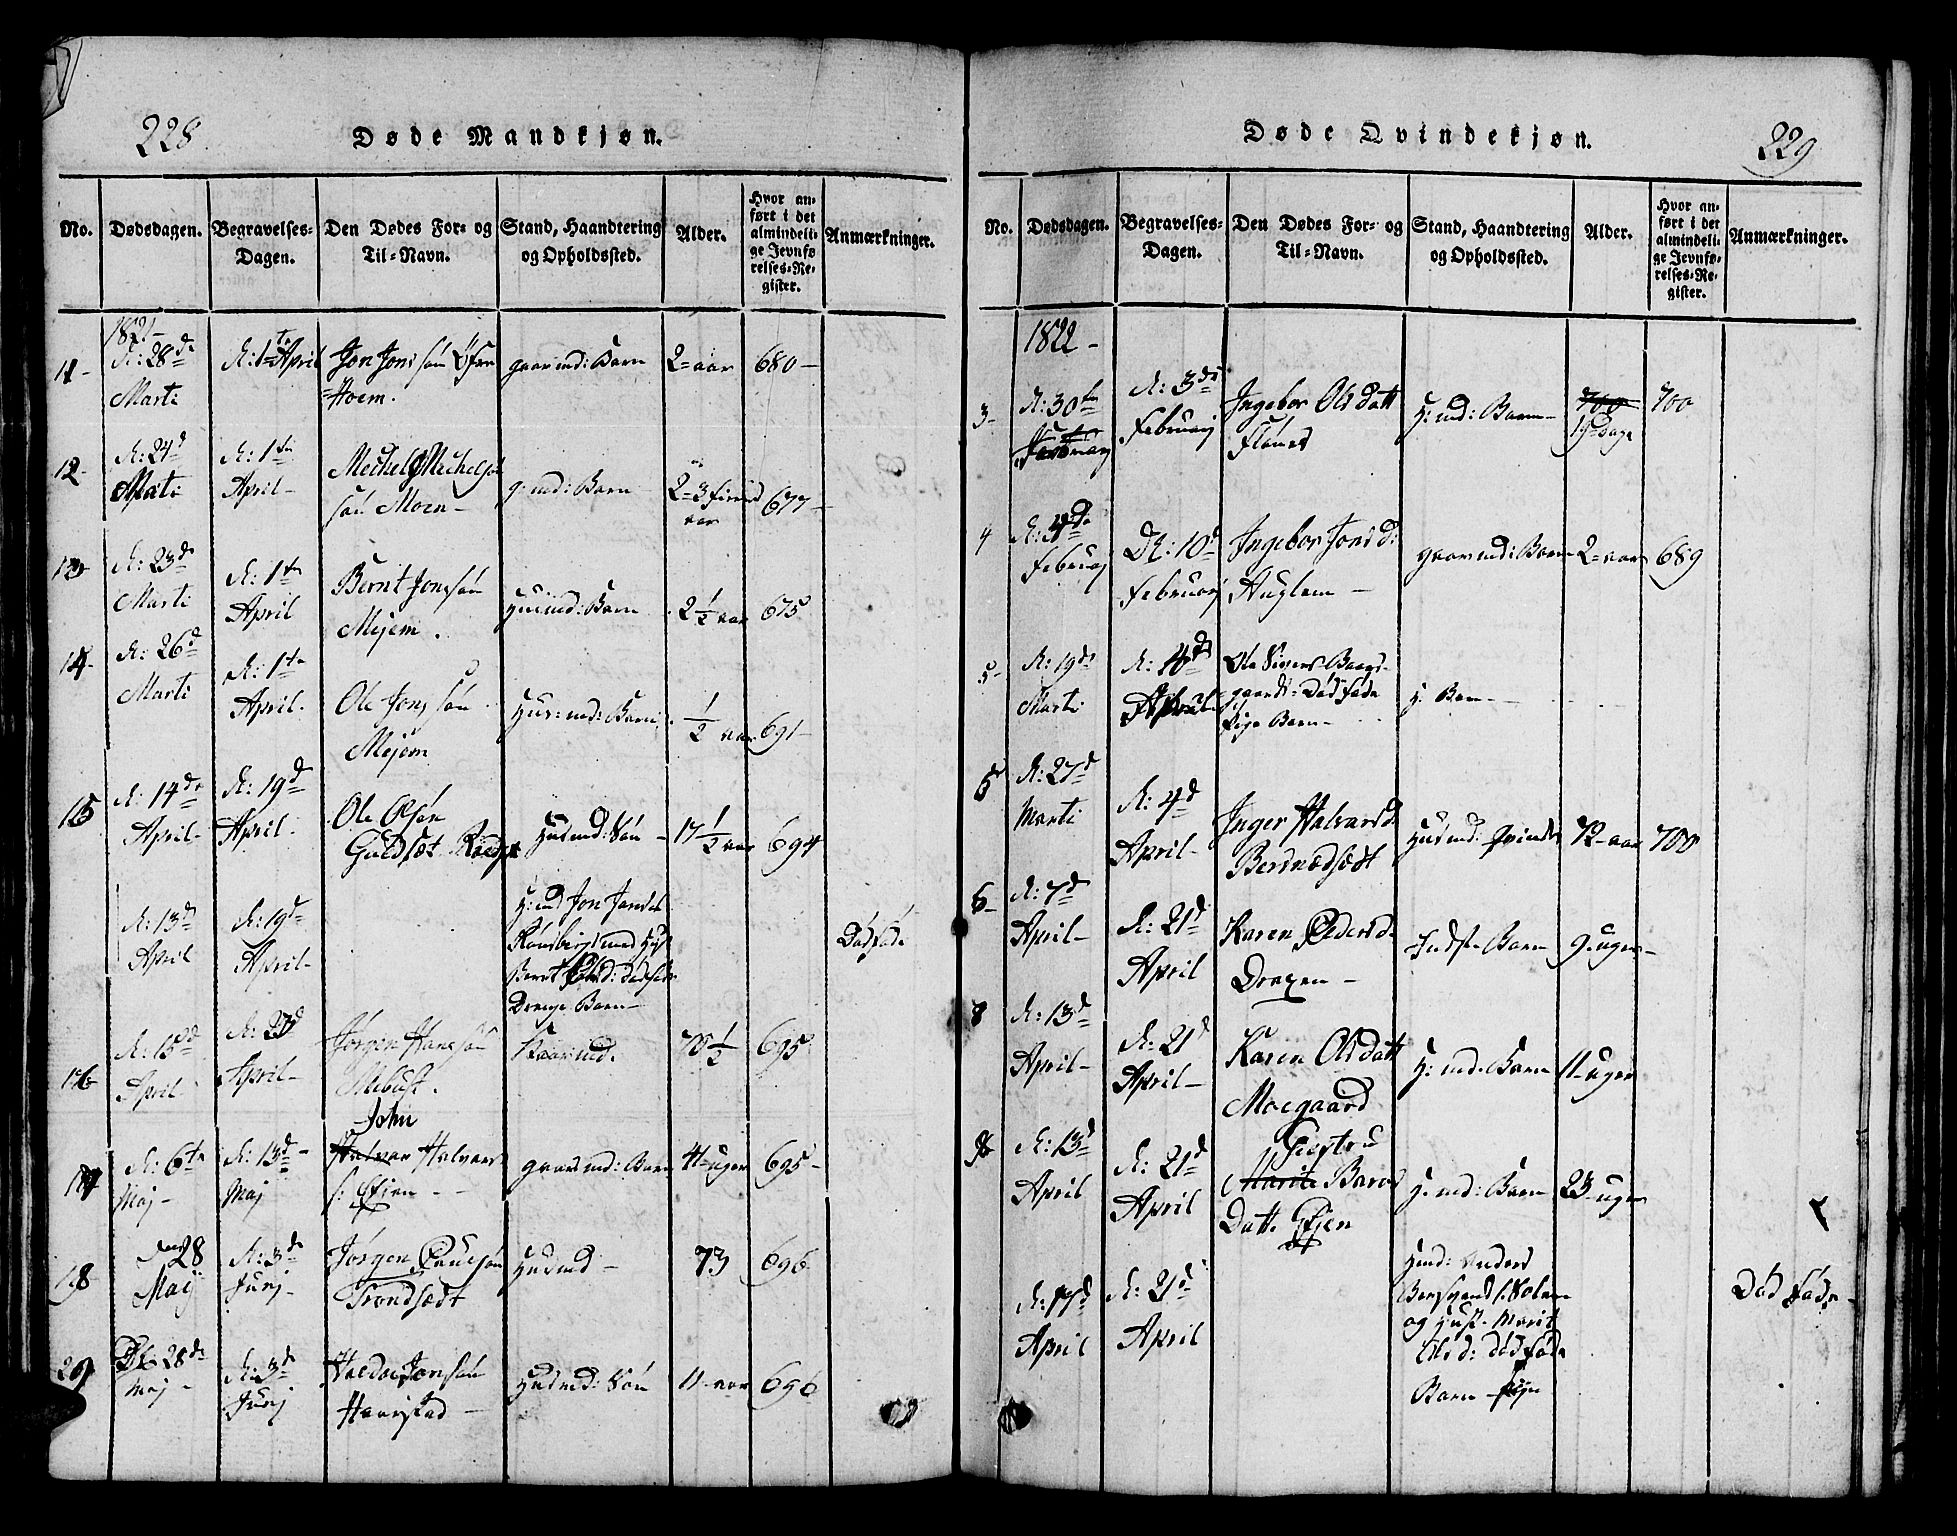 228
Døde Mandkjøn.
No.
Dødsdagen.
Begravelses-
Dagen.
Den Dødes For- og
Til-Navn.
Stand, Haandtering
og Opholdssted.
Alder.
Hvor an-
ført i det
almindeli-
ge Jevnfø-
relses-Re-
gister.
Anmærkninger.
1821-
11- d: 28de Marti d: 1ste April Jon Jonssøn Øfre Hoem. gaar md: Barn 2-aar 680-
12- d: 24d Marti d: 1ste April- Mechel Mechelsøn søn Moen- g: md: Barn 677-
13 d: 23de Marti d: 1ste April Bernt Jonssøn Mejem. Huusmd: Barn 2 1/2 aar 675
14- d: 26d Marti d: 1ste April- Ole Jonssøn Mejem Huusmd: Barn 1/2 aar 691-
15 d: 14de April- d: 19d April- Ole Olsøn Husmd: Søn- 17 1/2 aar 694
d: 13d April d: 19d April- H: md Jon
Drenge Barn- Dødfød.
16 d: 15d April- d: 27d April- Jørgen Hanssøn Mebust. Gaarmd. 70 1/2 695
17 d: 6te Maj- d: 13d- Maj John Halvar Halvars s: Øjen-- gaardmd: Barn 11-uger 695-
18 den 28 Maij d: 3d Junj- Jørgen Poulsøn Trondsædt Husmd- 73 696
20 D: 28de Maj- d: 3d Junj Haldo Jonssøn Harrstad- Husmd: Søn 11-aar 696
Døde Qvindekjøn.
229
No.
Dødsdagen.
Begravelses-
Dagen.
Den Dødes For- og
Til-Navn.
Stand, Haandtering
og Opholdssted.
Alder.
Hvor an-
ført i det
almindeli-
ge Jevnfø-
relses-Re-
gister.
Anmærkninger.
1822-
3- d: 30te d: 3de Februarj Ingebor Olsdatt Flønes H: md: Barn- 700 19 dage 700
4 d: 4de Februarj D: 10d Februarj Ingebor Jonsd: Auglem- gaar md: Barn 2-aar 689
5- d: 19de Marti d: 10de April Ole Sivers Baags-
gaards: Dødføde
Pige Barn- H. Barn-
6 d: 27d Marti d: 4d April- Inger Halvarsd: Bersnedsædt Husmd: Qvinde 72-aar 700
6- d: 7d April- d: 21d April Karen Pedersd: Dragen- Indst: Barn 9-uger-
8 d: 13d April- d: 21d April- Karen Olsdatt Moegaard H: md: Barn 11-uger
9 d: 13d April d: 21d April Giertru Marit Baros Datt: Øjen H: md: Barn 23-uger
d: 17d April d: 21d April Husmd: Anders
og Hust- Marit
Olsd: dødføde
Barn- Pige Død født-